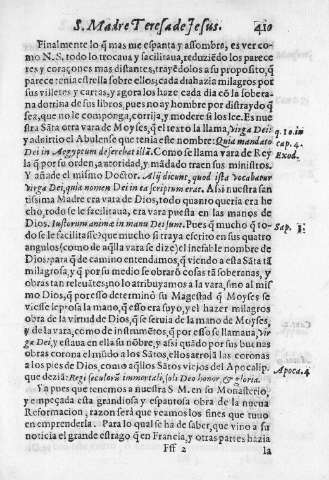 S. Madre Teresa de Jesus. 410
Finalmente lo q̃ mas me espanta y assombre, es ver co-
mo N.S. todo lo trocaua y facilitaua, reduziẽdo los parece
res y coraçones mas distantes, trayẽdolos a su proposito, q̃
parece tenia estrella sobre ellos; cada dia hazia milagros por
sus villetes y cartas, y agora los haze cada dia cõ la sobera-
na dotrina de sus libros, pues no ay hombre por distraydo q̃
sea, que no le componga, corrija, y modere si los lee. Es nue
stra Sãta otra vara de Moyses, q̃ el texto la llama, Virga Dei: q. 10. in
y aduirtio el Abulense que tenia esse nombre: Quia mandato cap. 4.
Dei in Aegyptum deferebat illã. Como se llama vara de Rey Exod.
la q̃ por su orden, autoridad, y mãdado traen sus ministros.
Y añade el mismo Doctor. Alij dicunt, quod ista vocabatur
Virga Dei, quia nomen Dei in ea scriptum erat. Assi nuestra san
tissima Madre era vara de Dios, todo quanto queria era he
cho, todo se le facilitaua, era vara puesta en las manos de
Dios. Iustorum animæ in manu Dei sunt. Pues q̃ mucho q̃ to- Sap. 3.
do se le facilitasse? que mucho si traya escrito en sus quatro
angulos (como de aq̃lla vara se dize) el inefable nombre de
Dios: para q̃ de camino entendamos, q̃ viendo a esta Sãta tã
milagrosa, y q̃ por su medio se obrarõ cosas tã soberanas, y
obras tan releuãtes; no lo atribuyamos a la vara, sino al mis
mo Dios, q̃ por esso determinò su Magestad q̃ Moyses se
viesse leproso la mano, q̃ esso era suyo, y el hazer milagros
obra de la virtud de Dios, q̃ se seruia de la mano de Moyses,
y de la vara, como de instrumẽtos, q̃ por esso se llamaua, Vir
ga Dei, y estaua en ella su nõbre, y assi quãdo por sus buenas
obras corona el mũdo a los Sãtos, ellos arrojã las coronas
a los pies de Dios, como aq̃llos Sãtos viejos del Apocalip.
que dezia: Regi seculorũ immortali, soli Deo honor, & gloria. Apoca. 4
Ya pues que tenemos a nuestra S. M. en su Monasterio,
y empeçada esta grandiosa y espantosa obra de la nueua
Reformacion, razon serà que veamos los fines que tuuo
en emprenderla. Para lo qual se ha de saber, que vino a su
noticia el grande estrago q̃ en Francia, y otras partes hazia
Fff 2 la